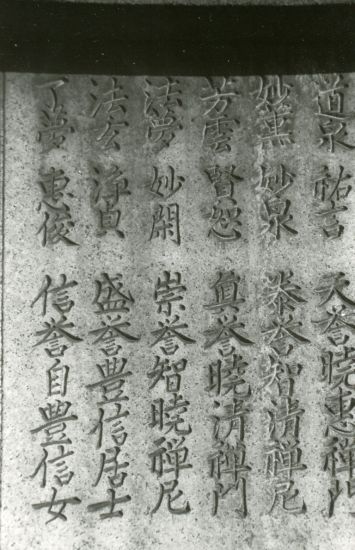 道泉 祐言 天誉暁恵禅門
妙薫 妙泉 泰誉智清禅尼
芳雲 賢恕 真誉暁清禅門
法夢 妙閑 崇誉智暁禅尼
法玄 浄貞 盛誉豊信居士
了夢 恵俊 信誉自豊信女